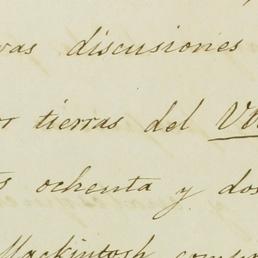 vas discusiones
or tierras del V
s ochenta y dos
Mackintosh